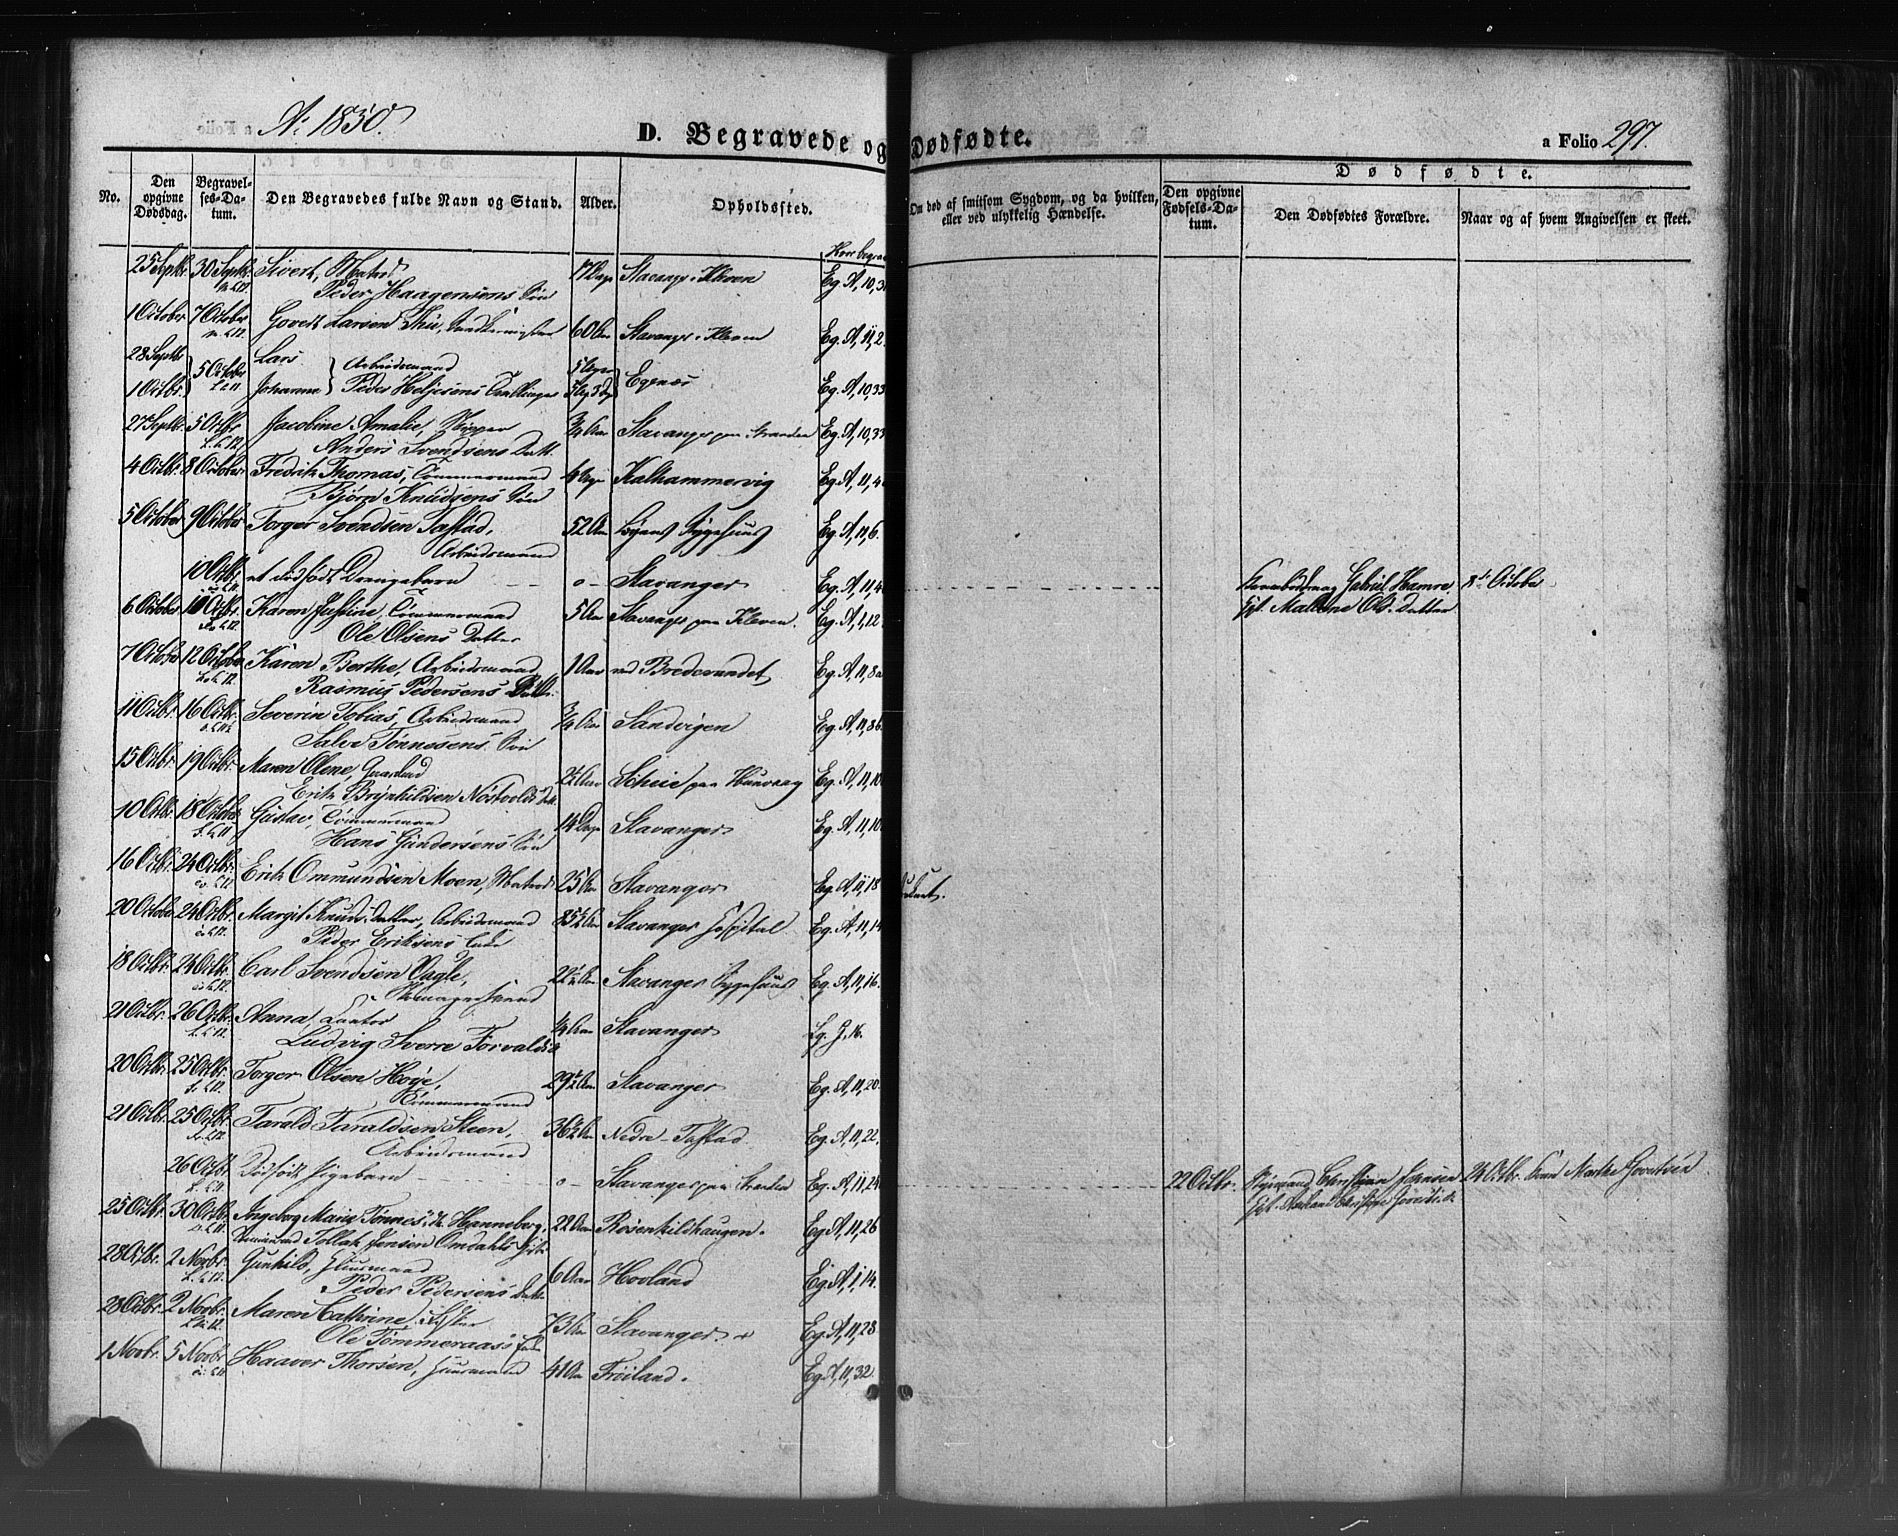 Aº 1850.
D. Begravede og Dødfødte.
a Folio 297.
No.
Den opgivne Dødsdag.
Begravelses-Datum.
Den Begravedes fulde Navn og Stand.
Alder.
Opholdssted.
Om død af smitsom Sygdom, og da hvilken, eller ved ulykkelig Hændelse.
Dødfødte.
Den opgivne Fødsels-Datum.
Den Dødfødtes Forældre.
Naar og af hvem Angivelsen er skeet.
25 Septbr. 30 Septbr. Sivert, Matros
Peder Haagensens Søn 17 Dage Stavanger Kleven Eg. A, 10, 3
1 October 7 October Govert Larsen Thu, 60 Aar Stavanger Kleven Eg. A, 11, 2
28 Septbr. Lars
5 October Arbeidsmand
1 Octbr. Johanne Peder Heljesens Tvillinger Egenæs Eg. A, 10, 33
27 Septbr. 5 Octbr. Jacobine Amalie, Skipper
Anders Svendsens Datt. 3/4 Aar Stavanger paa Stranden Eg. A, 10, 33
4 Octbr. 8 October Fredrik Thomas, Tømmermand
Bjørn Knudsens Søn Kalhammervig Eg. A, 11, 4
5 October 9 October Torger Svendsen Tastad,
Arbeidsmand 52 Aar Byens Sygehuus Eg. A, 11, 6
10 Octbr. et dødfødt Drengebarn - o - Stavanger Eg. A, 11, 4 Gabriel Hamre 8de October
Malene Ols. Datter
6 October 10 Octbr. Karen Justine, Tømmermand
Ole Olsens Datter 5 Aar Stavanger paa Kleven. Eg. A, 1, 12
7 October 12 October Karen Berthe, Arbeidsmand
Rasmus Pedersens Datt. 1 Aar ved Bredevandet Eg. A, 11, 8
11 Octbr. 16 Octbr. Severin Tobias, Arbeidsmand
Salve Tønnesens Søn 3/4 Aar Sandvigen Eg. A, 11, 86
15 Octbr. 19 Octbr. Maren Olene, Gaardmd
Erik Brynhildsen Nøstvolds Dat. 2½ Aar Scheie paa Hunvaag Eg. A, 11, 10
10 Octbr. 18 October Gustav, Tømmermand
Hans Gundersens Søn 14 Dage Stavanger Eg. A, 11, 10
16 Octbr. 24 Octbr. Erik Ommundsen Moen, Matros 25 Aar Stavanger Eg. A, 11, 18
20 October 24 Octbr. Margit Knuds Datter, Arbeidsmand
Peder Eriksens Enke 85½ Aar Stavanger Hospital Eg. A, 11, 14
18 Octbr. 24 Octbr. Carl Svendsen Vagle,
Skomagersvend 22½ Aar Stavanger Sygehuus Eg. A, 11, 16.
21 Octbr. 26 Octbr. Anna, Cantor
Ludvig Sverre Torvalds ¼ Aar Stavanger Lg. G, 16.
20 Octbr. 25 Octbr. Torger Olsen Høje,
Tømmermand 29½ Aar Stavanger Eg. A, 11, 20.
21 Octbr. 25 Octbr. Tarald Taraldsen Steen,
Arbeidsmand 36½ Aar Nedre Tastad Eg. A, 11, 22.
26 Octbr. Dødfødt Pigebarn - o - Stavanger paa Stranden Eg. A, 11, 24 22 Octbr. Styrmand Christian Jansen 24 Octbr. Kone Marthe Govertsen
25 Octbr. 30 Octbr. Ingeborg Marie Tønnes. D. Henneberg,
Tollak Jensen Omdahls 22 Aar Rosenkildhaugen. Eg. A, 11, 26
28 Octbr. 2 Novbr. Gunhild, Huusmand
Peder Pedersens Datt. 6 Aar Hovland Eg. A, 1, 14.
28 Octbr. 2 Novbr. Maren Cathrine,
Ole Tømmeraas's Enke 73 Aar Stavanger Eg. A, 11, 28
1 Novbr. 5 Novbr. Haaver Thorsen, Huusmand 41 Aar Friland. Eg. A, 11, 32.